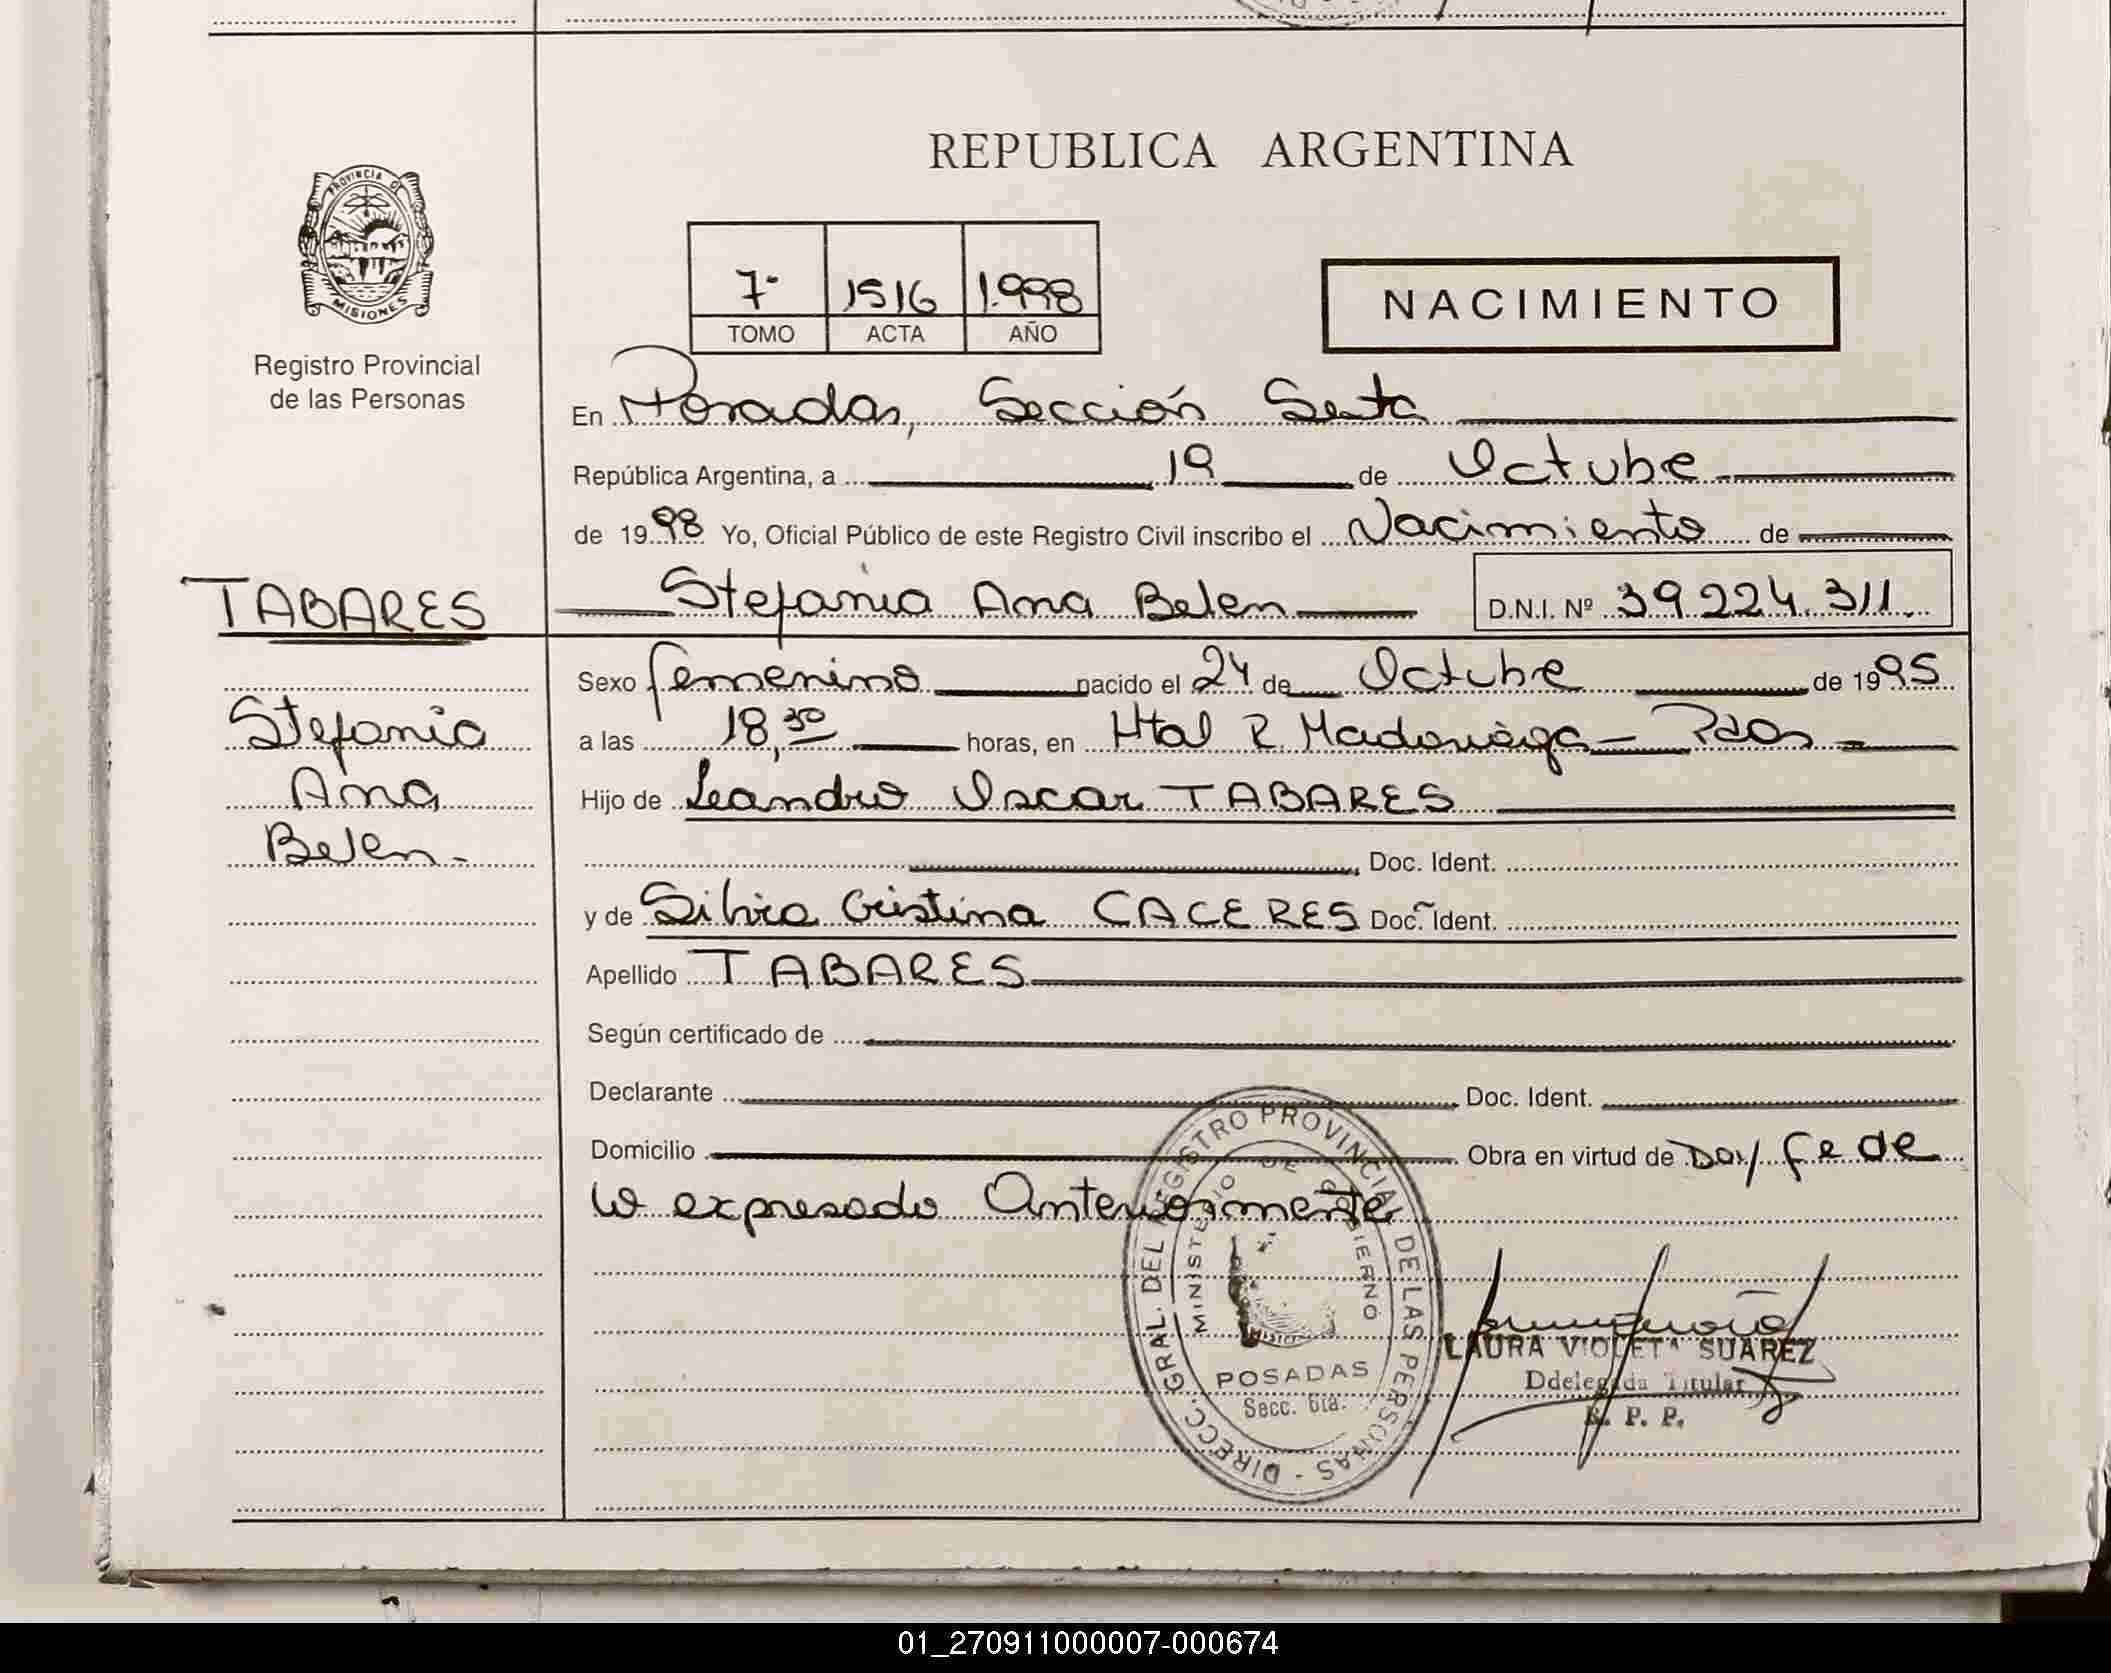 REPUBLICA ARGENTINA
PROVINCIA DE
MISIONES
Registro Provincial
de las Personas
7º 1516 1.998
TOMO ACTA AÑO
NACIMIENTO
En Posadas, Sección Sexta
República Argentina, a 19 de Octubre
de 1998 Yo, Oficial Público de este Registro Civil inscribo el Nacimiento de
TABARES
Stefania Ana Belen D.N.I. Nº 39.224.311
Stefania
Ana
Belen.-
Sexo femenino nacido el 24 de Octubre de 1995
a las 18,30 horas, en Htal R. Madariaga - Pdas -
Hijo de Leandro Oscar TABARES
Doc. Ident.
y de Silvia Cristina CACERES Doc. Ident.
Apellido TABARES
Según certificado de
Declarante Doc. Ident.
Domicilio Obra en virtud de Doy fe de
lo expresado Anteriormente
DIRECC. GRAL. DEL REGISTRO PROVINCIAL DE LAS PERSONAS -
MINISTERIO DE GOBIERNO
POSADAS
Secc. 6ta.
LAURA VIOLETA SUAREZ
Ddelegada Titular
R. P. P.
01_270911000007-000674